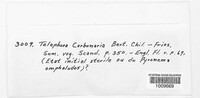 3009. Telephora Carbonaria Berk. Chil. - Fries,
Sum. veg. Scand. p. 350. - Engl. Fl. v. p. 69.
(Etat initial stérile ou du Pyronema
omphalodes)?
1009669